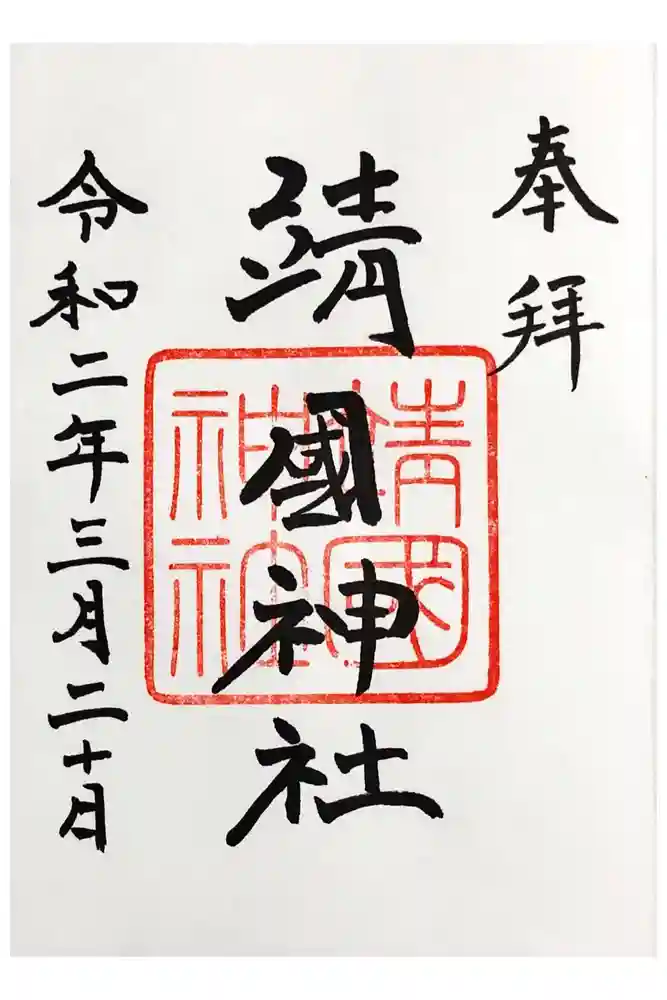 奉拝
靖國神社
靖國
神社
令和二年三月二十日